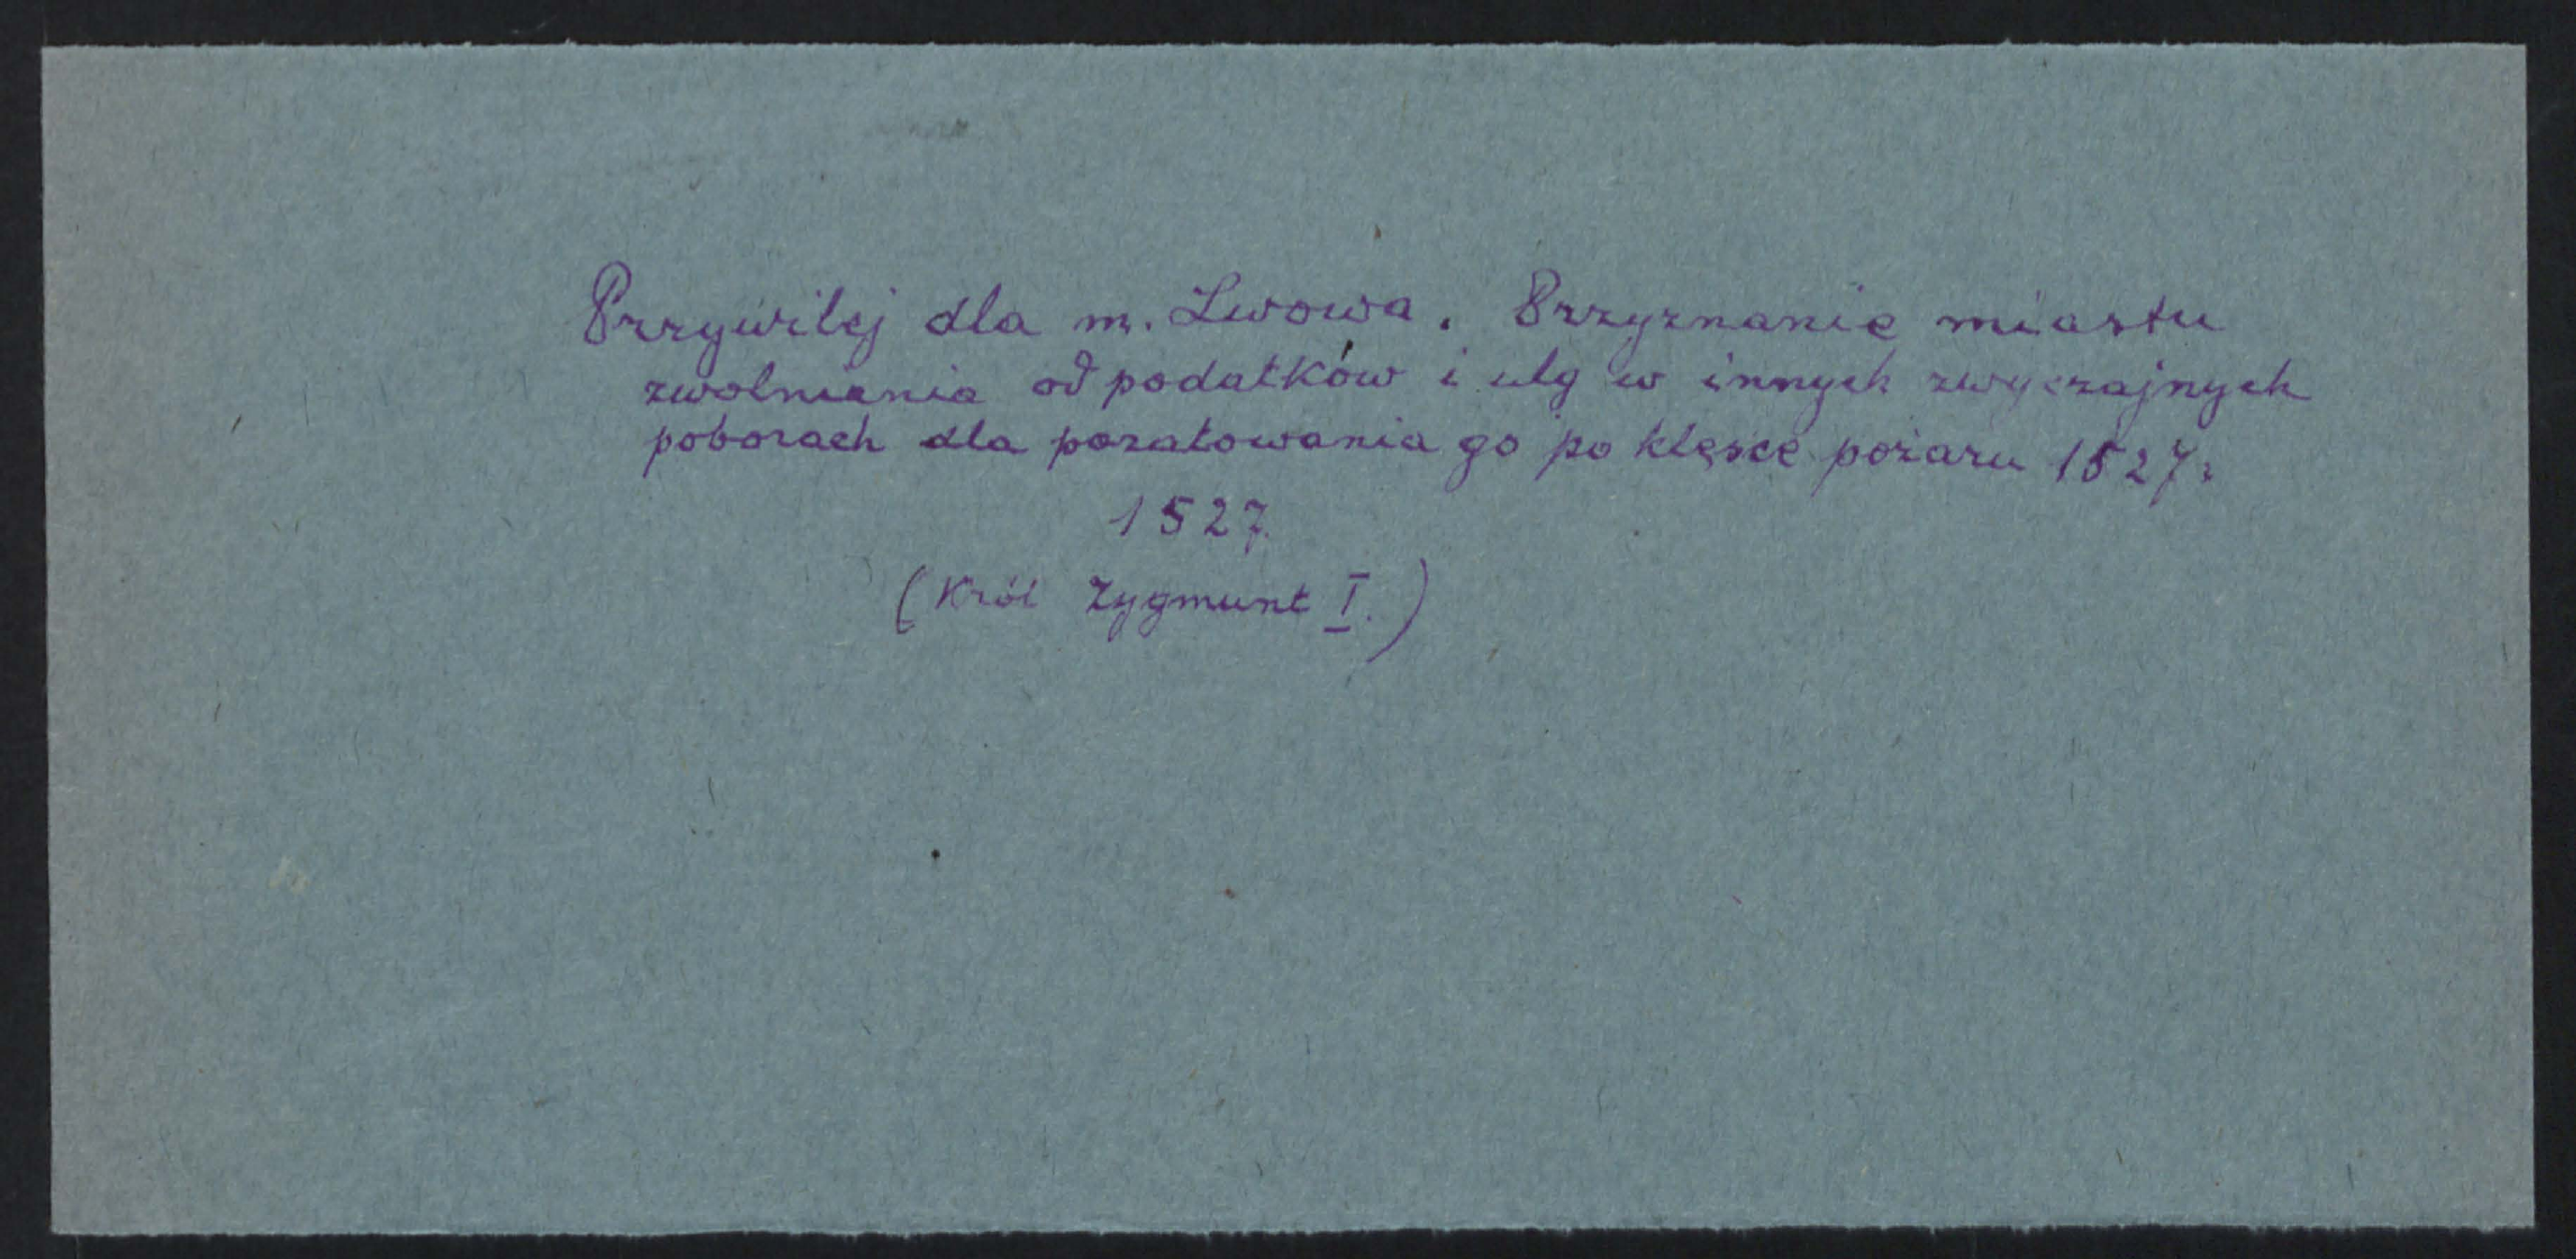 Przywilej dla m. Lwowa. Przyznanie miastu
zwolnienia od podatków i ulg w innych zwyczajnych
poborach dla poratowania go po klęsce pożaru 1527r
1527.
(Król Zygmunt I.)